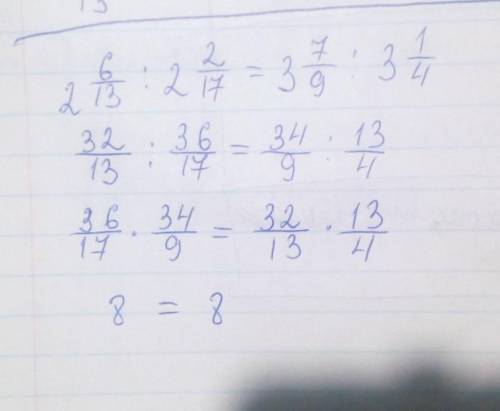 2 6/13 : 2 2/17 = 3 7/9 : 3 1/4
32/13 : 36/17 = 34/9 : 13/4
36/17 · 34/9 = 32/13 · 13/4
8 = 8